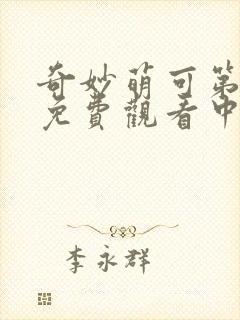 奇妙萌可第
免費觀看中
李永群